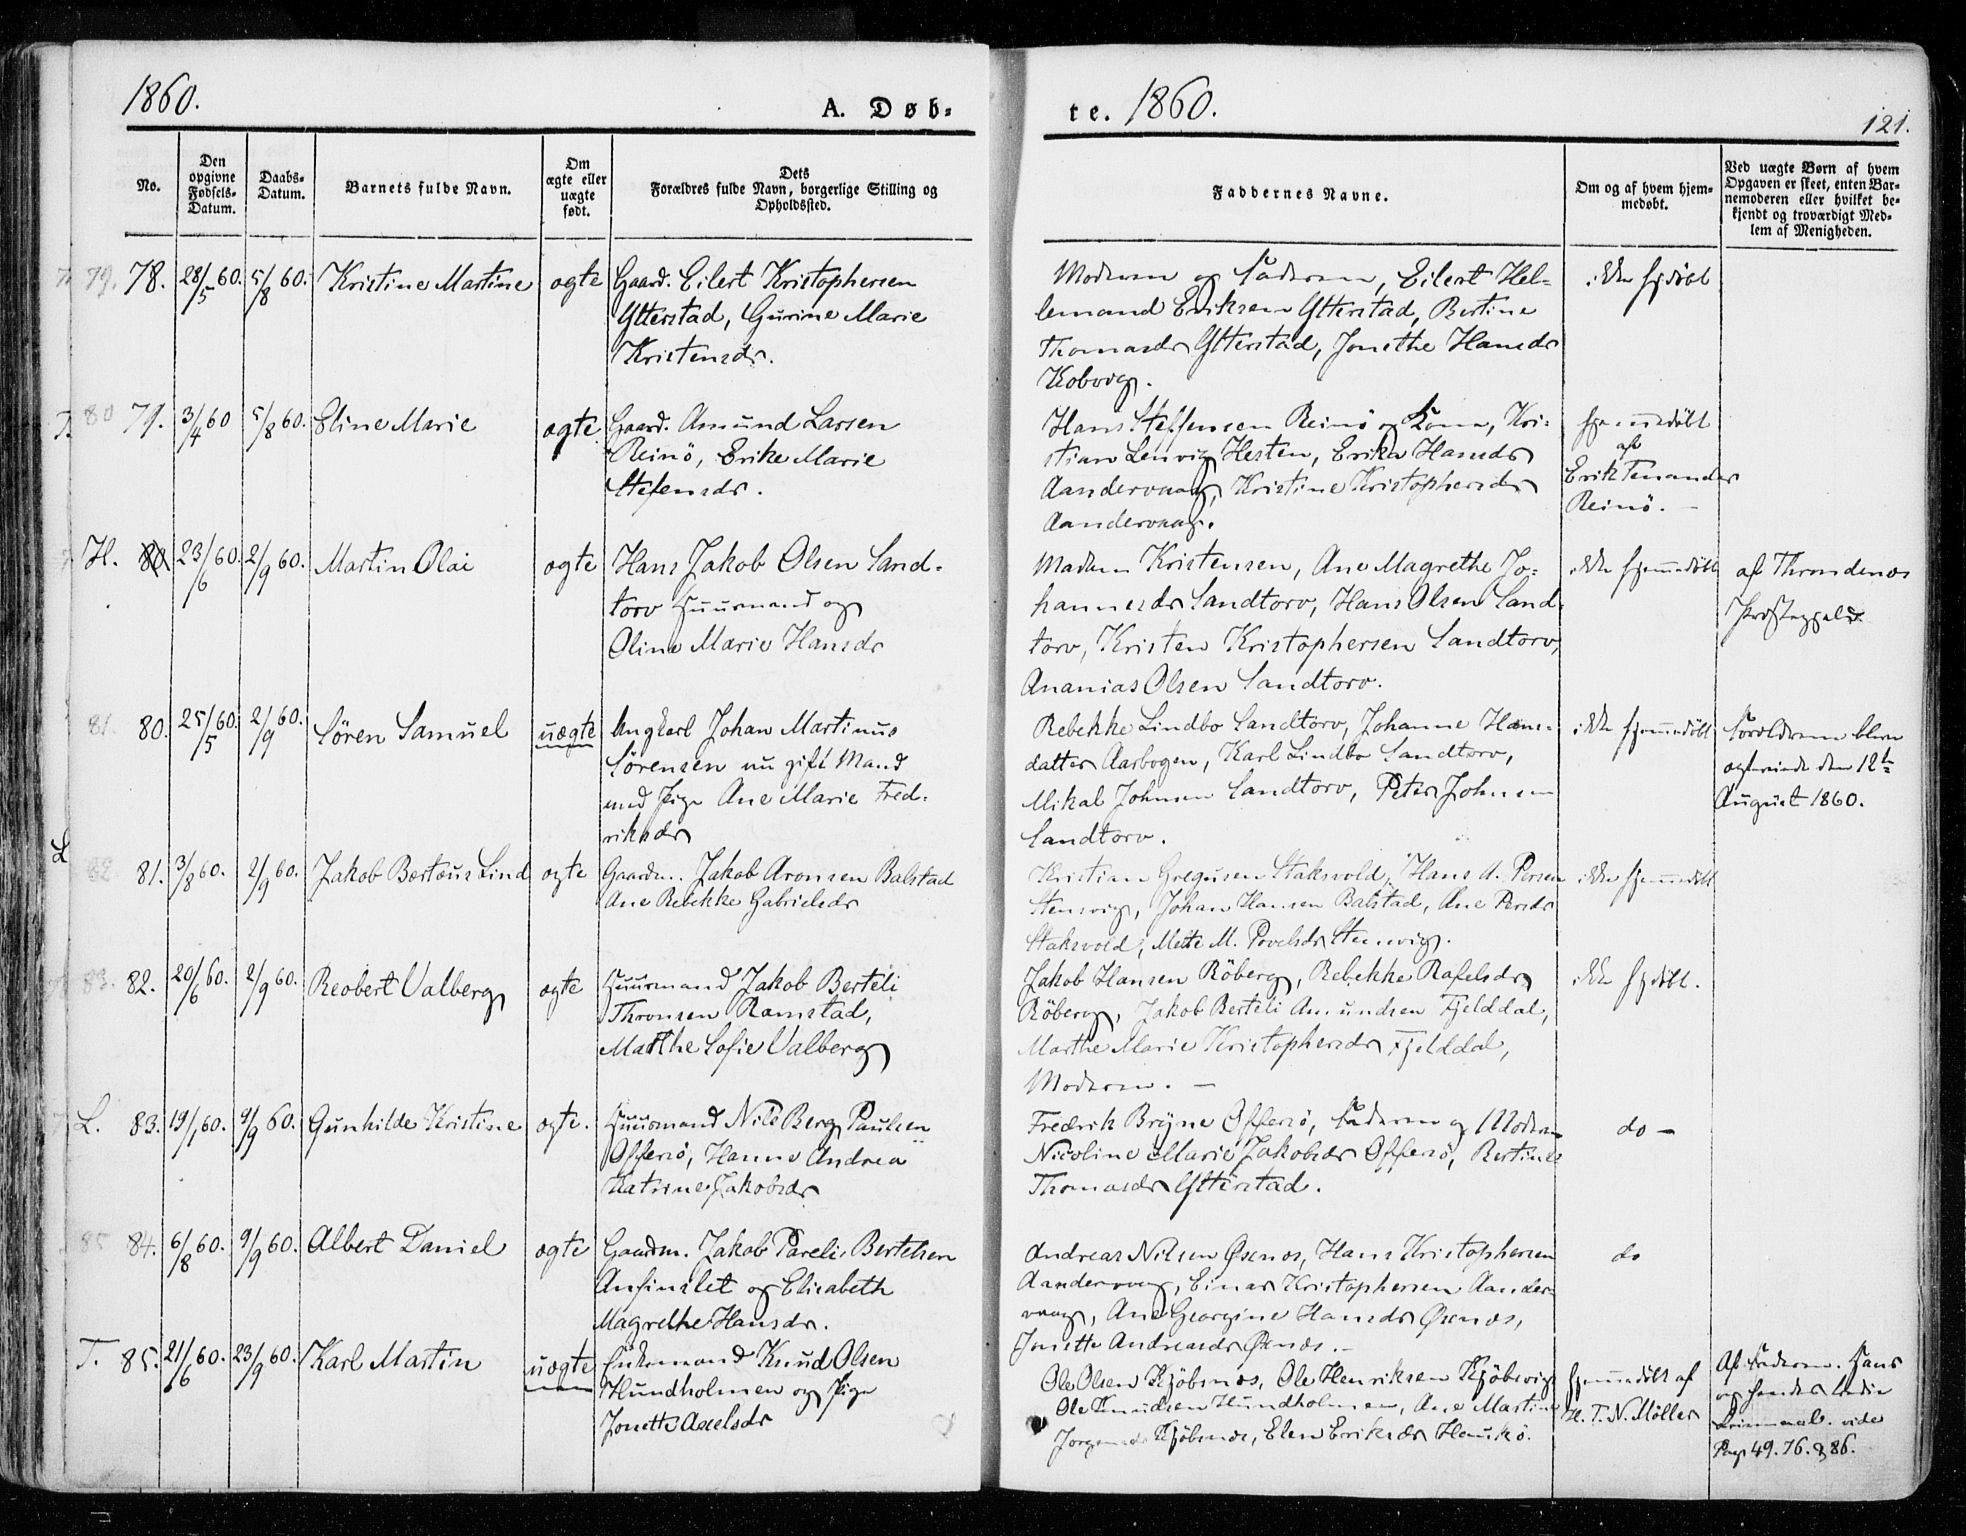 1860.
A. Døb-
te. 1860.
121.
No.
Den
opgivne
Fødsels-
Datum.
Daabs-
Datum.
Barnets fulde Navn.
Om
ægte eller
uægte
født.
Dets
Forældres fulde Navn, borgerlige Stilling og
Opholdssted.
Faddernes Navne.
Om og af hvem hjem-
medøbt.
Ved uægte Børn af hvem
Opgaven er skeet, enten Bar-
nemoderen eller hvilket be-
kjendt og troværdigt Med-
lem af Menigheden.
79. 78. 28/5 60. 5/8 60. Kristine Martine ægte
Gaard. Eilert Kristophersen
Ytterstad, Gurine Marie
Kristensdr.
Moderen og Faderen, Eilert Hel-
lemand Eriksen Ytterstad, Bertine
Thomasdr Ytterstad, Jonethe Hansdr
Kobvig.
ikke hjdøbt
80 79. 3/4 60 5/8 60. Eline Marie ægte
Gaard. Amund Larsen
Reinö, Erike Marie
Stefensdr.
Hans Steffensen Reinö og Kone, Kri-
stian Lenvig Hesten, Erika Hansdr
Aandervaag, Kristine Kristophersdr
Aandervaag.
hjemmedøbt
af
Erik Tenander
Reinö.
H. 80 23/6 60. 2/9 60. Martin Olai ægte
Hans Jakob Olsen Sand-
torv Huusmand og
Oline Marie Hansdr
Madam Kristensen, Ane Magrethe Jo-
hannesdr Sandtorv, Hans Olsen Sand-
torv, Kristen Kristophersen Sandtorv,
Ananias Olsen Sandtorv.
ikke hjemmedøbt
af Throndenæs
Præstegjeld.
81. 80. 25/5 60. 2/9 60. Sören Samuel uægte
Ungkarl Johan Martinus
Sörensen nu gift Mand
med Pige Ane Marie Fred-
riksdr
Rebekke Lindbo Sandtorv, Johanne Hans-
datter Aarbogen, Karl Lindbo Sandtorv,
Mikal Johnsen Sandtorv, Peter Johnsen
Sandtorv.
ikke hjemmedøbt
Forældrene bleve
ægteviede den 12te
August 1860.
L
82. 81. 3/8 60. 2/9 60. Jakob Bertæus Lind ægte
Gaardm. Jakob Aronsen Balstad
Ane Rebekke Gabrielsdr
Kristian Gregusen Staksvold, Hans A. Persen
Stensvig, Johan Hansen Balstad, Ane Persdr
Staksvold, Mette M. Povelsdr Stensvig.
ikke hjemmedøbt
83. 82. 20/6 60. 2/9 60. Reobert Valberg ægte
Huusmand Jakob Berteli
Thronsen Ramstad,
Marthe Sofie Valberg
Jakob Hansen Röberg, Rebekke Rafelsdr
Röberg, Jakob Berteli Amundsen Fjelddal,
Marthe Marie Kristophersdr Fjelddal,
Moderen.
ikke hjdøbt.
L. 83. 19/1 60. 9/9 60. Gunhilde Kristine ægte.
Huusmand Nils Berg Paulsen
Offersö, Hanne Andrea
Katrine Jakobsdr
Fredrik Bryne Offersö, Faderen og Moderen
Nicoline Marie Jakobsdr Offersö, Bertine
Thomasdr Ytterstad.
do
85 84. 6/8 60. 9/9 60. Albert Daniel ægte
Gaardm. Jakob Pareli Bertelsen
Anfinslet og Elisabeth
Magrethe Hansdr.
Andreas Nilsen Øxnæs, Hans Kristophersen
Aandervaag, Einar Kristophersen Aander-
vaag, Ane Georgine Hansdr Øxnæs,
Jonette Andreasdr Øxnæs.
do
T. 85. 21/6 60. 23/9 60. Karl Martin uægte
Enkemand Knud Olsen
Hundholmen og Pige
Jonette Axelsdr
Ole Olsen Kjöbsnæs, Ole Henriksen Kjöbsvig
Ole Knudsen Hundholmen, Ane Martine
Jörgensdr Kjöbsnæs, Elen Eriksdr Haukö.
hjemmedøbt af
H. T. N. Möller
Af Faderen. Hans
og hendes tredie
Leiermaal. vide
Pag 49. 76. & 86.